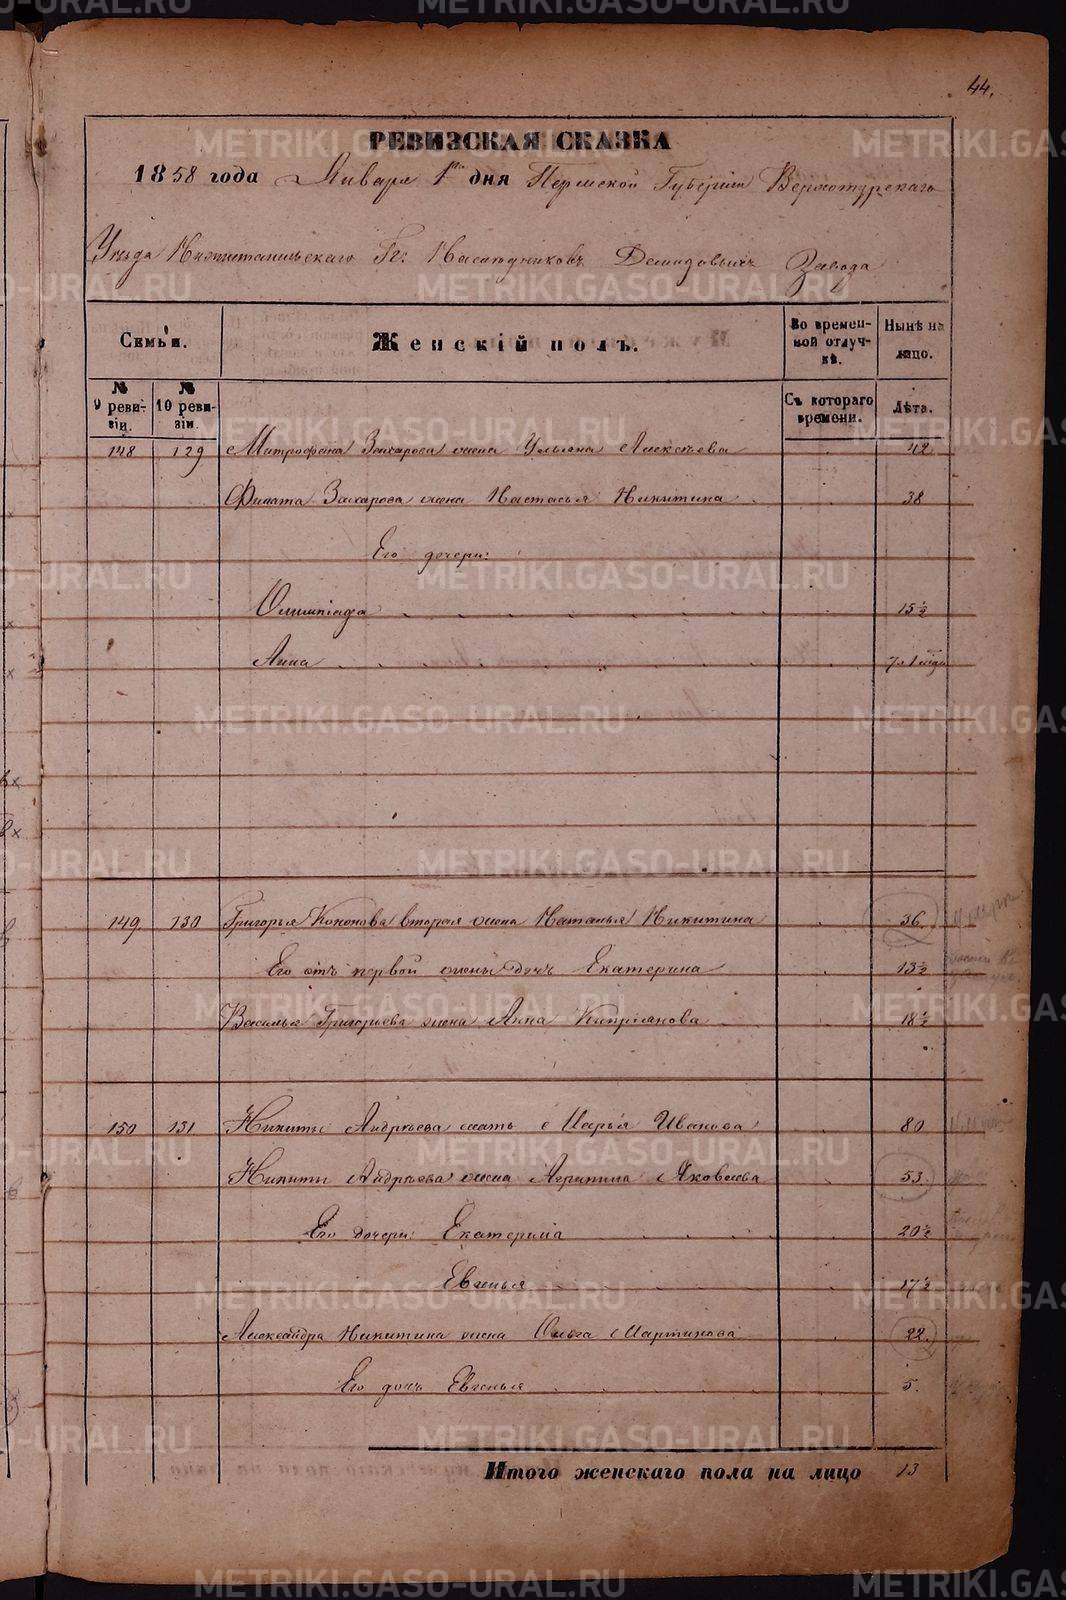 44.
РЕВИЗСКАЯ СКАЗКА
1858 года Января 1го дня Пермской Губерніи Верхотурскаго
Уѣзда Нижнетагильскаго Гг: Наслѣдниковъ Демидовыхъ Завода
Семьи.
Женскій полъ.
Во временной отлучкѣ.
Нынѣ на лицо.
№ 9 ревизіи.
№ 10 ревизіи.
Съ котораго времени.
Лѣта.
148 129 Митрофана Захарова жена Ульяна Алексѣева 42
Филата Захарова жена Настасья Никитина 38
Его дочери:
Олимпіада 15½
Анна
149 130 Григорья Кононова вторая жена Наталья Никитина 36
Его отъ первой жены дочь Екатерина 13½
Василья Григорьева жена Анна Кипріянова 18½
150 131 Никиты Андрѣева мать Марья Иванова 80
Никиты Андрѣева жена Агрипина Яковлева 53
Его дочери: Екатерина 20½
Евгенья 17½
Александра Никитина жена Ольга Мартинова 22
Его дочь Евгенья 5
Итого женскаго пола на лицо 13
METRIKI.GASO-URAL.RU